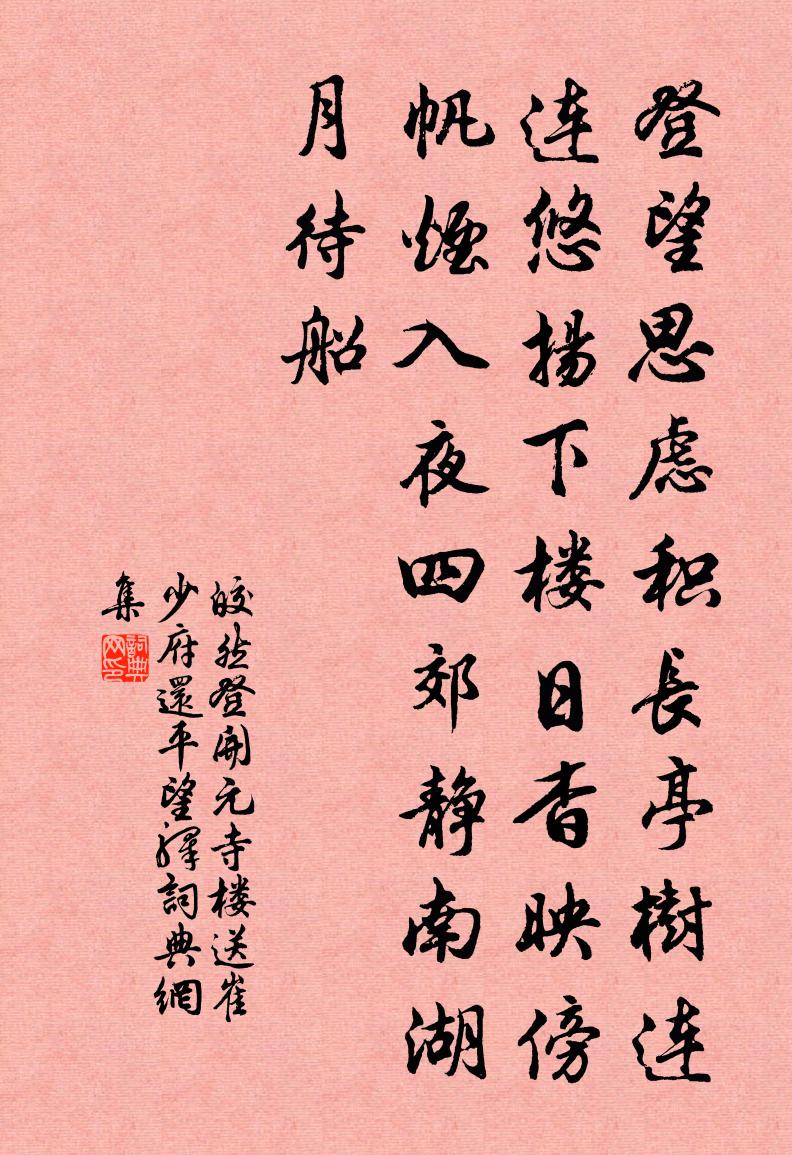 登望思虑积長亭樹连
连悠揚下楼日杳映傍
帆煙入夜四郊静南湖
月待船
皎然登開元寺楼送崔
少府還平望驛詞典網
集
詞典
网印